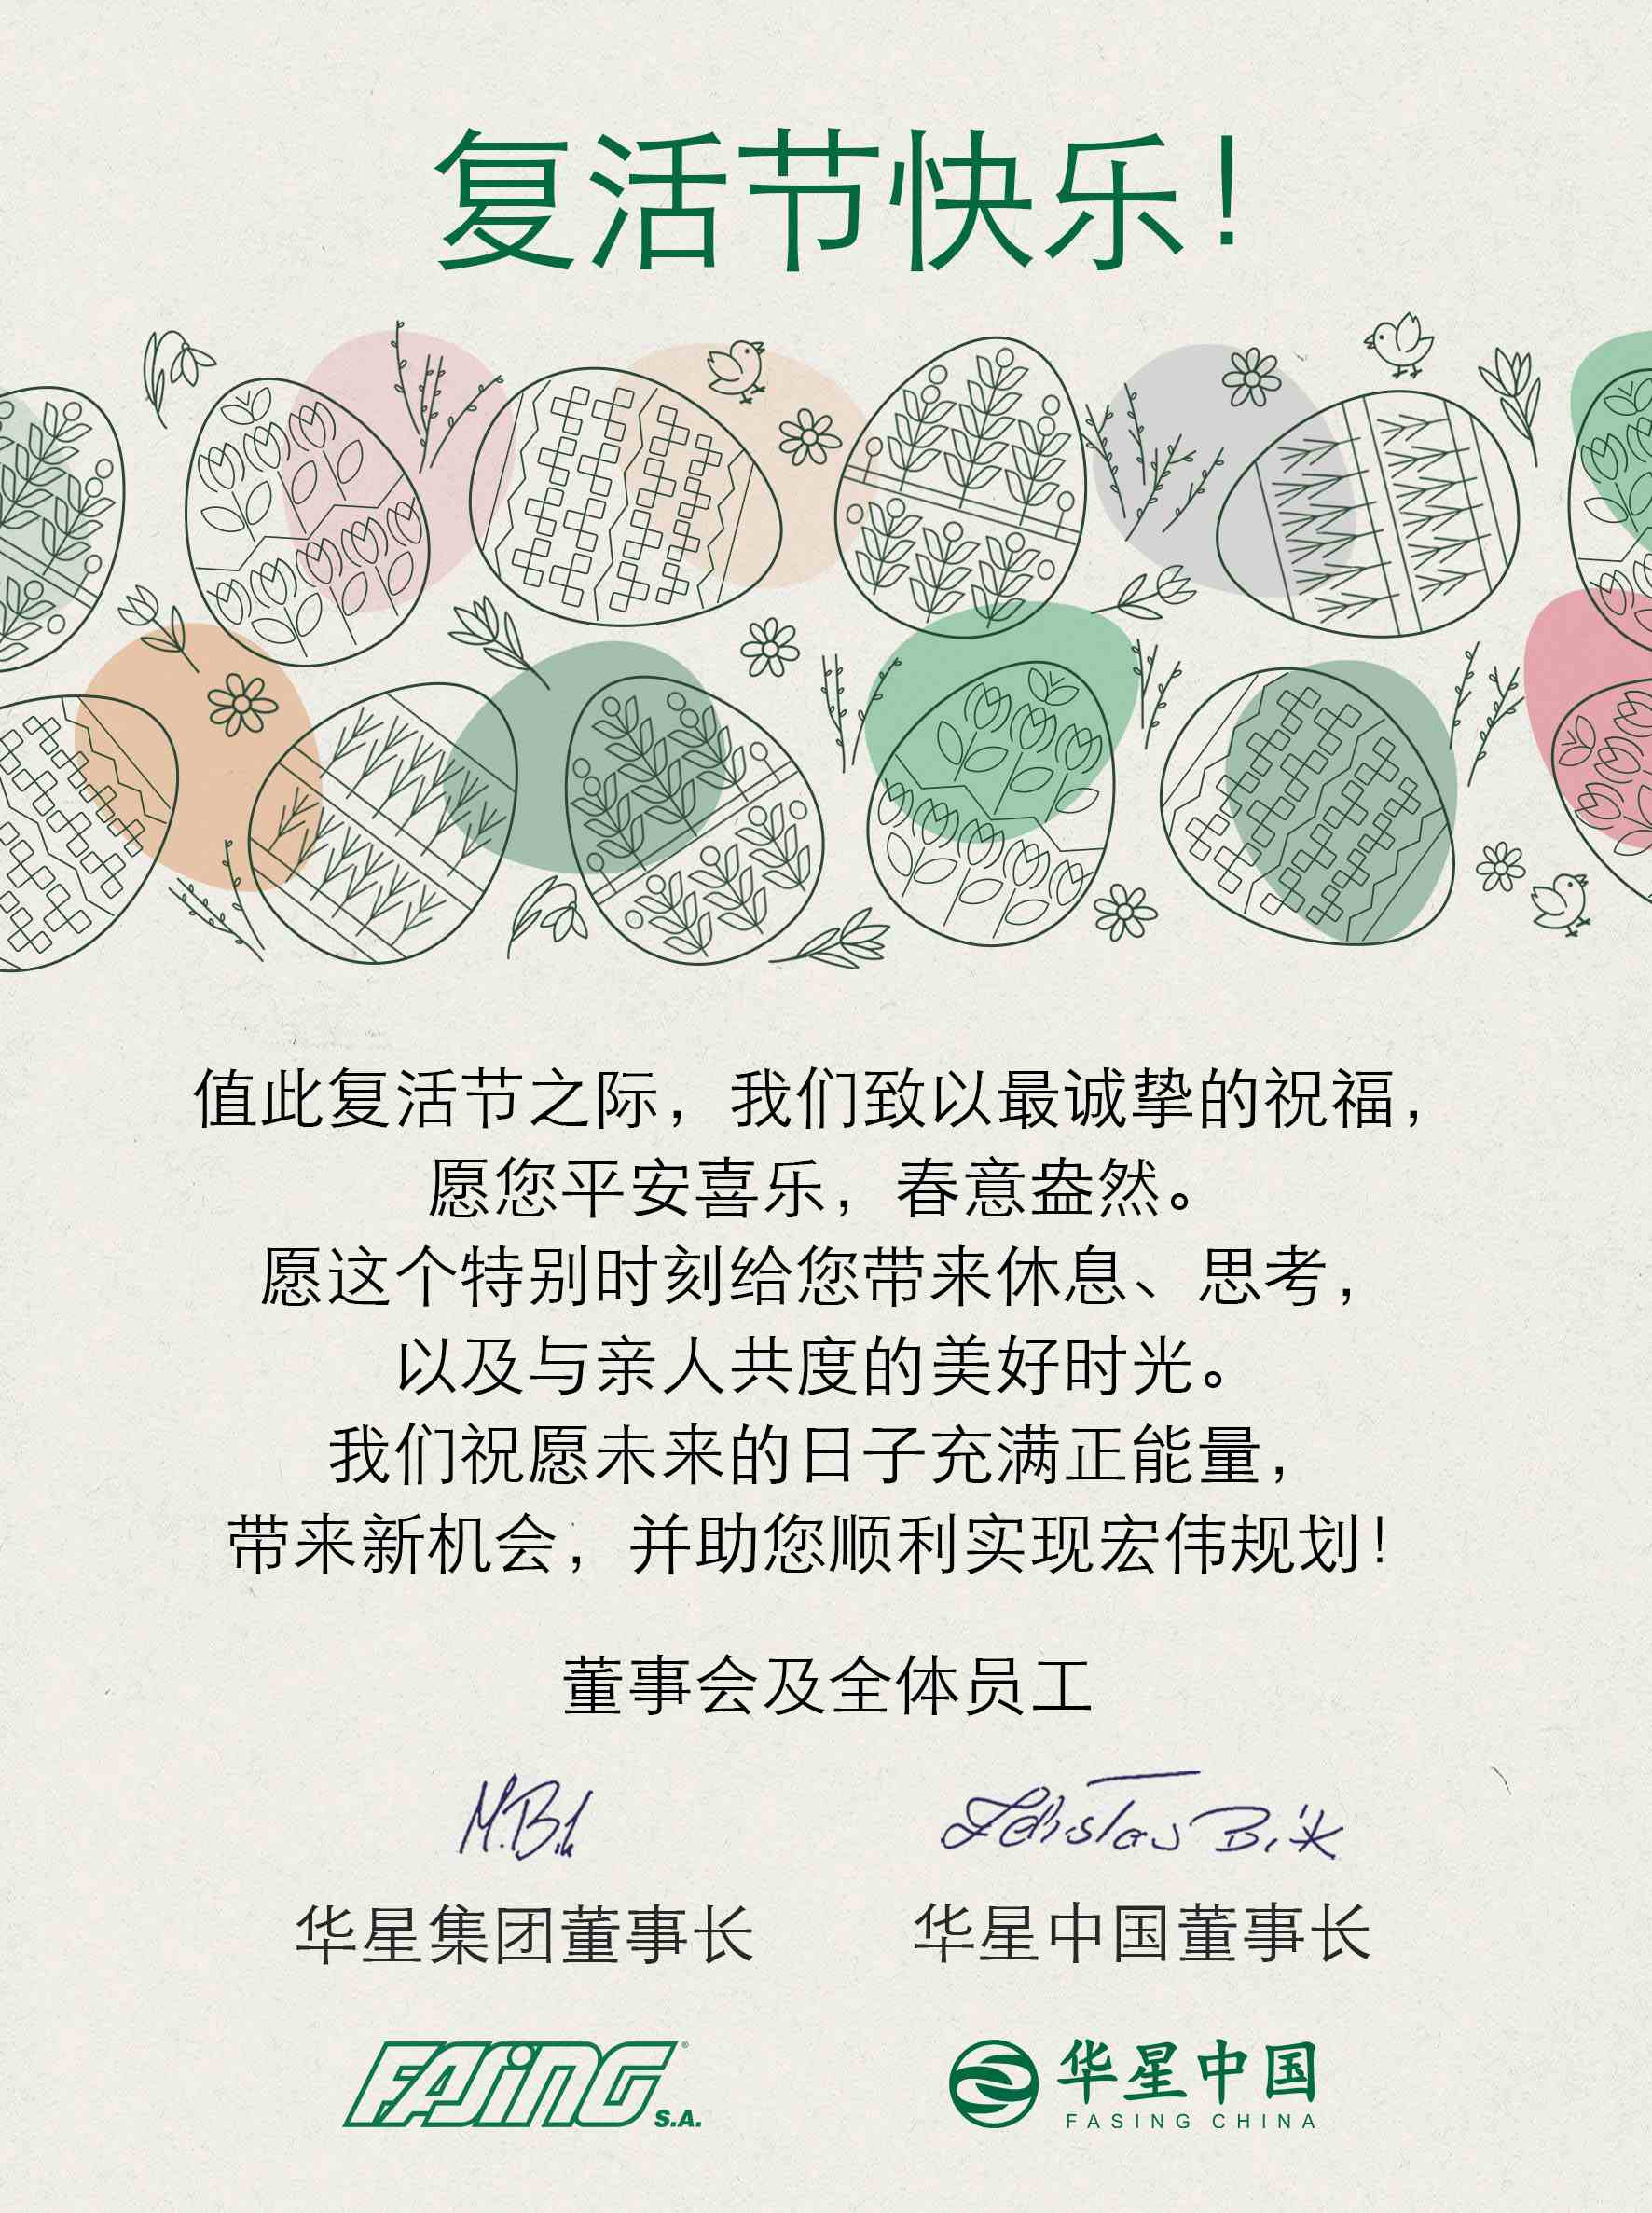 复活节快乐！
值此复活节之际，我们致以最诚挚的祝福，
愿您平安喜乐，春意盎然。
愿这个特别时刻给您带来休息、思考，
以及与亲人共度的美好时光。
我们祝愿未来的日子充满正能量，
带来新机会，并助您顺利实现宏伟规划！
董事会及全体员工
M. Bik
Zdzisław Bik
华星集团董事长
华星中国董事长
FASING® S.A.
华星中国
FASING CHINA